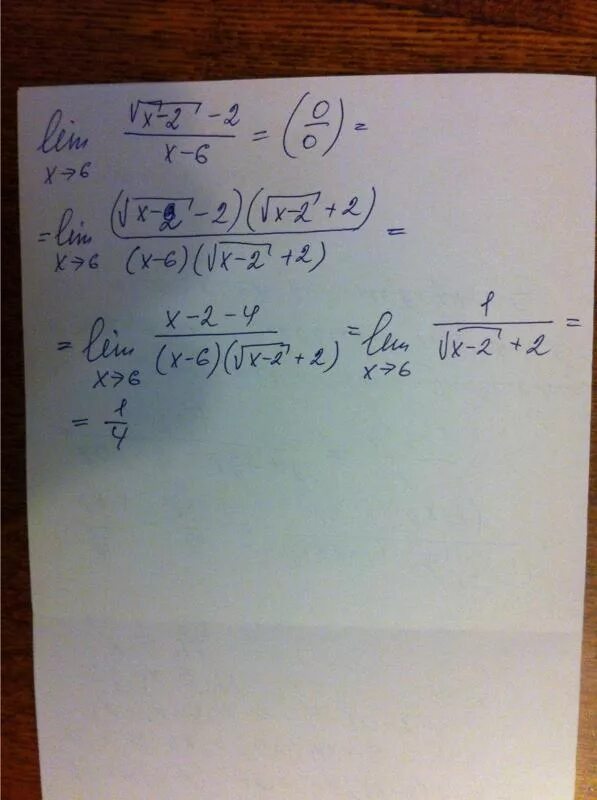 lim x→6 (√(x-2) - 2)/(x-6) = (0/0) =
= lim x→6 ((√(x-2) - 2)(√(x-2) + 2))/((x-6)(√(x-2) + 2)) =
= lim x→6 (x-2-4)/((x-6)(√(x-2) + 2)) = lim x→6 1/(√(x-2) + 2) =
= 1/4